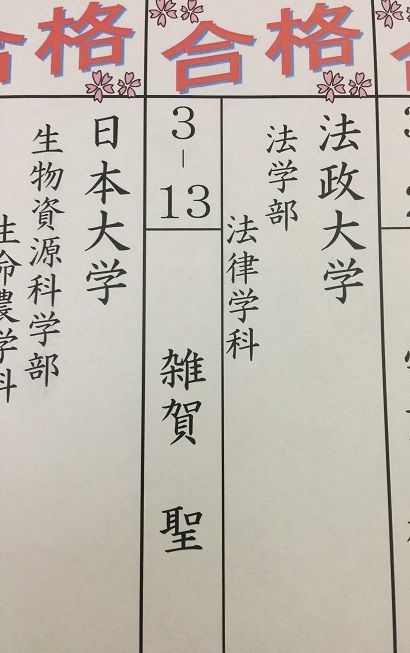 合格
法政大学
法学部
法律学科
3-13
雑賀 聖
合格
日本大学
生物資源科学部
生命農学科